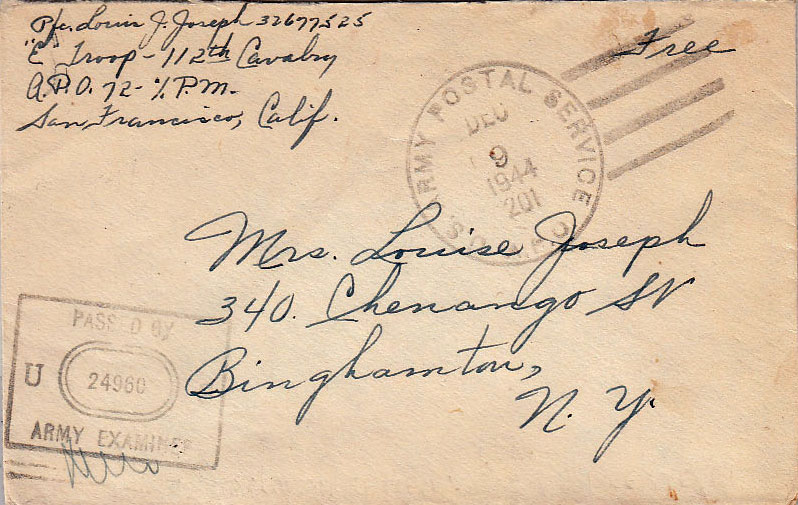 Pfc. Louis J. Joseph 32677525
"E" Troop - 112th Cavalry
A.P.O. 72 - % P.M.
San Francisco, Calif.
Free
ARMY POSTAL SERVICE
DEC
9
1944
201
A.P.O.
Mrs. Louise Joseph
340. Chenango St
Binghamton,
N. Y.
PASSED BY
U
24960
ARMY EXAMINER